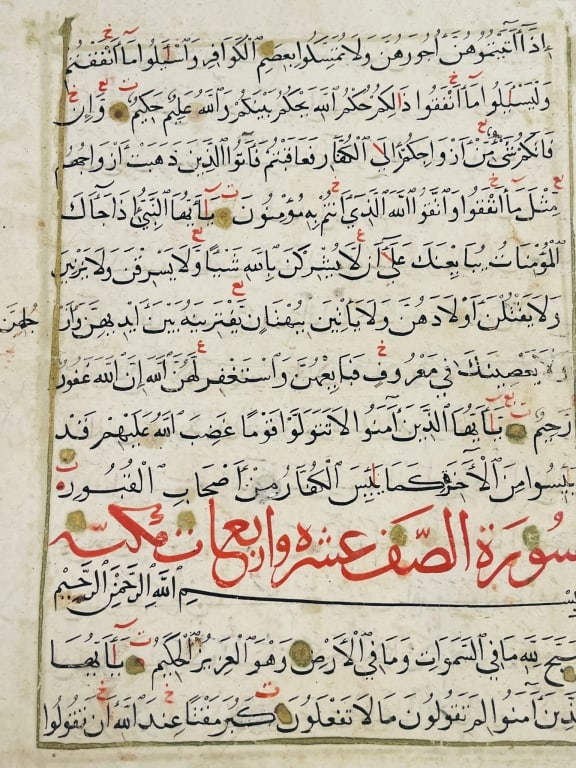 إذا آتيتموهن أجورهن ولا تمسكوا بعصم الكوافر واسئلوا ما أنفقتم
وليسئلوا ما أنفقوا ذالكم حكم الله يحكم بينكم والله عليم حكيم وإن
فاتكم شيء من أزواجكم إلى الكفار فعاقبتم فآتوا الذين ذهبت أزواجهم
مثل ما أنفقوا واتقوا الله الذي أنتم به مؤمنون يا أيها النبي إذا جاءك
المؤمنات يبايعنك على أن لا يشركن بالله شيئا ولا يسرقن ولا يزنين
ولا يقتلن أولادهن ولا يأتين ببهتان يفترينه بين أيديهن وأر
جلهن
ولا يعصينك في معروف فبايعهن واستغفر لهن الله إن الله غفور
رحيم يا أيها الذين آمنوا لا تتولوا قوما غضب الله عليهم قد
يئسوا من الآخرة كما يئس الكفار من أصحاب القبور
سورة الصف عشره واربع ايات مكية
بسم الله الرحمن الرحيم
سبح لله ما في السموات وما في الأرض وهو العزيز الحكيم يا أيها
الذين آمنوا لم تقولون ما لا تفعلون كبر مقتا عند الله أن تقولوا